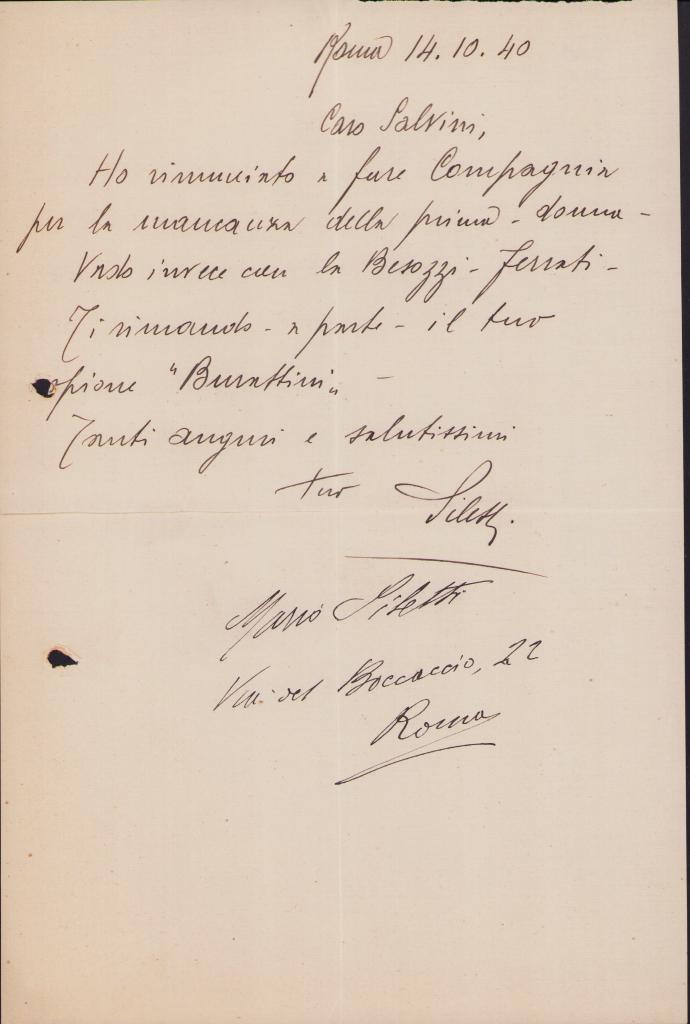 Roma 14.10.40
Caro Salvini,
Ho rinunciato a fare Compagnia
per la mancanza della prima - donna -
Vado invece con la Besozzi - Ferrati -
Ti rimando - a parte - il tuo
copione "Burattini" -
Tanti auguri e salutissimi
tuo Siletti.
Mario Siletti
Via del Boccaccio, 22
Roma